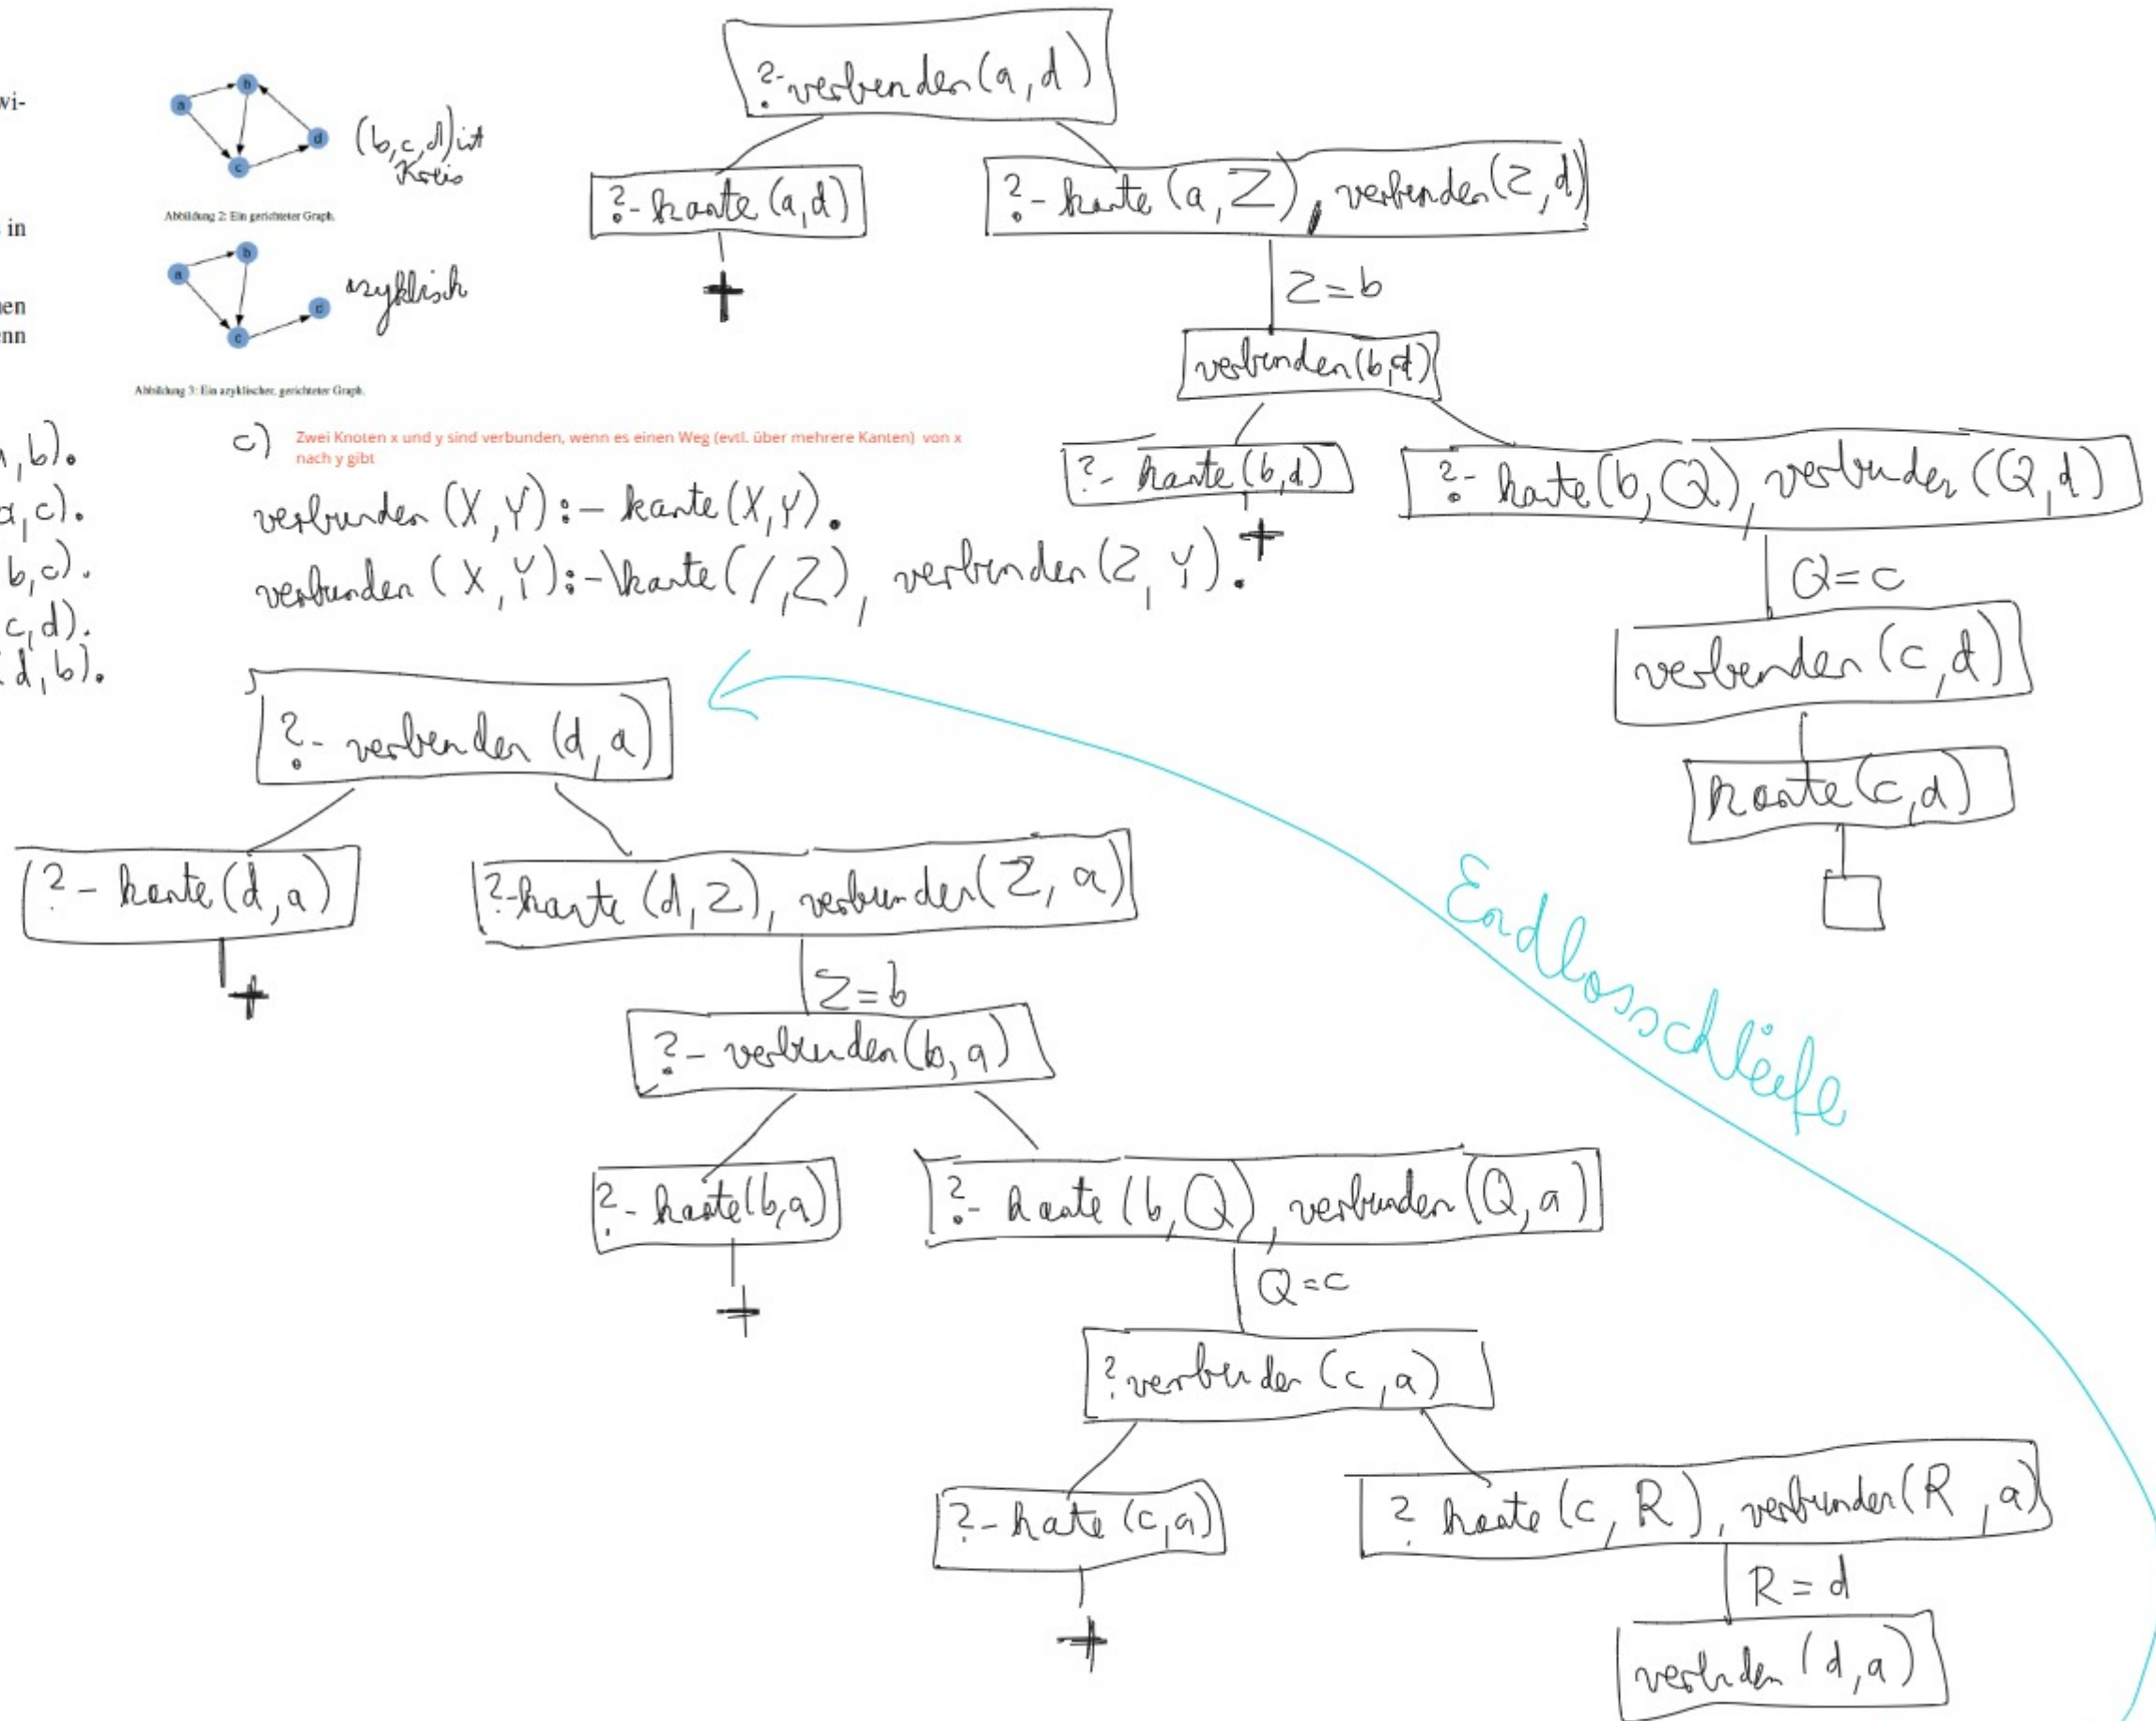 wi-
in
en
nn
a
b
c
d
(b,c,d) ist
Kreis
Abbildung 2: Ein gerichteter Graph.
a
b
c
d
azyklisch
Abbildung 3: Ein azyklischer, gerichteter Graph.
,b).
a,c).
b,c).
c,d).
d,b).
c)
Zwei Knoten x und y sind verbunden, wenn es einen Weg (evtl. über mehrere Kanten) von x
nach y gibt
verbunden (X,Y):- kante(X,Y).
verbunden (X,Y):- kante( ,Z), verbunden(Z,Y).
?-verbunden(a,d)
?- kante (a,d)
?- kante (a,Z), verbunden(Z,d)
Z=b
verbunden(b,d)
?- kante(b,d)
?- kante(b,Q), verbunden (Q,d)
Q=c
verbunden (c,d)
kante(c,d)
?- verbunden (d,a)
?- kante(d,a)
?-kante (d,Z), verbunden(Z,a)
Z=b
?- verbunden(b,a)
?- kante(b,a)
?- kante (b,Q), verbunden (Q,a)
Q=c
? verbunden (c,a)
?- kante (c,a)
? kante (c,R), verbunden(R,a)
R=d
verbunden (d,a)
Endlosschleife